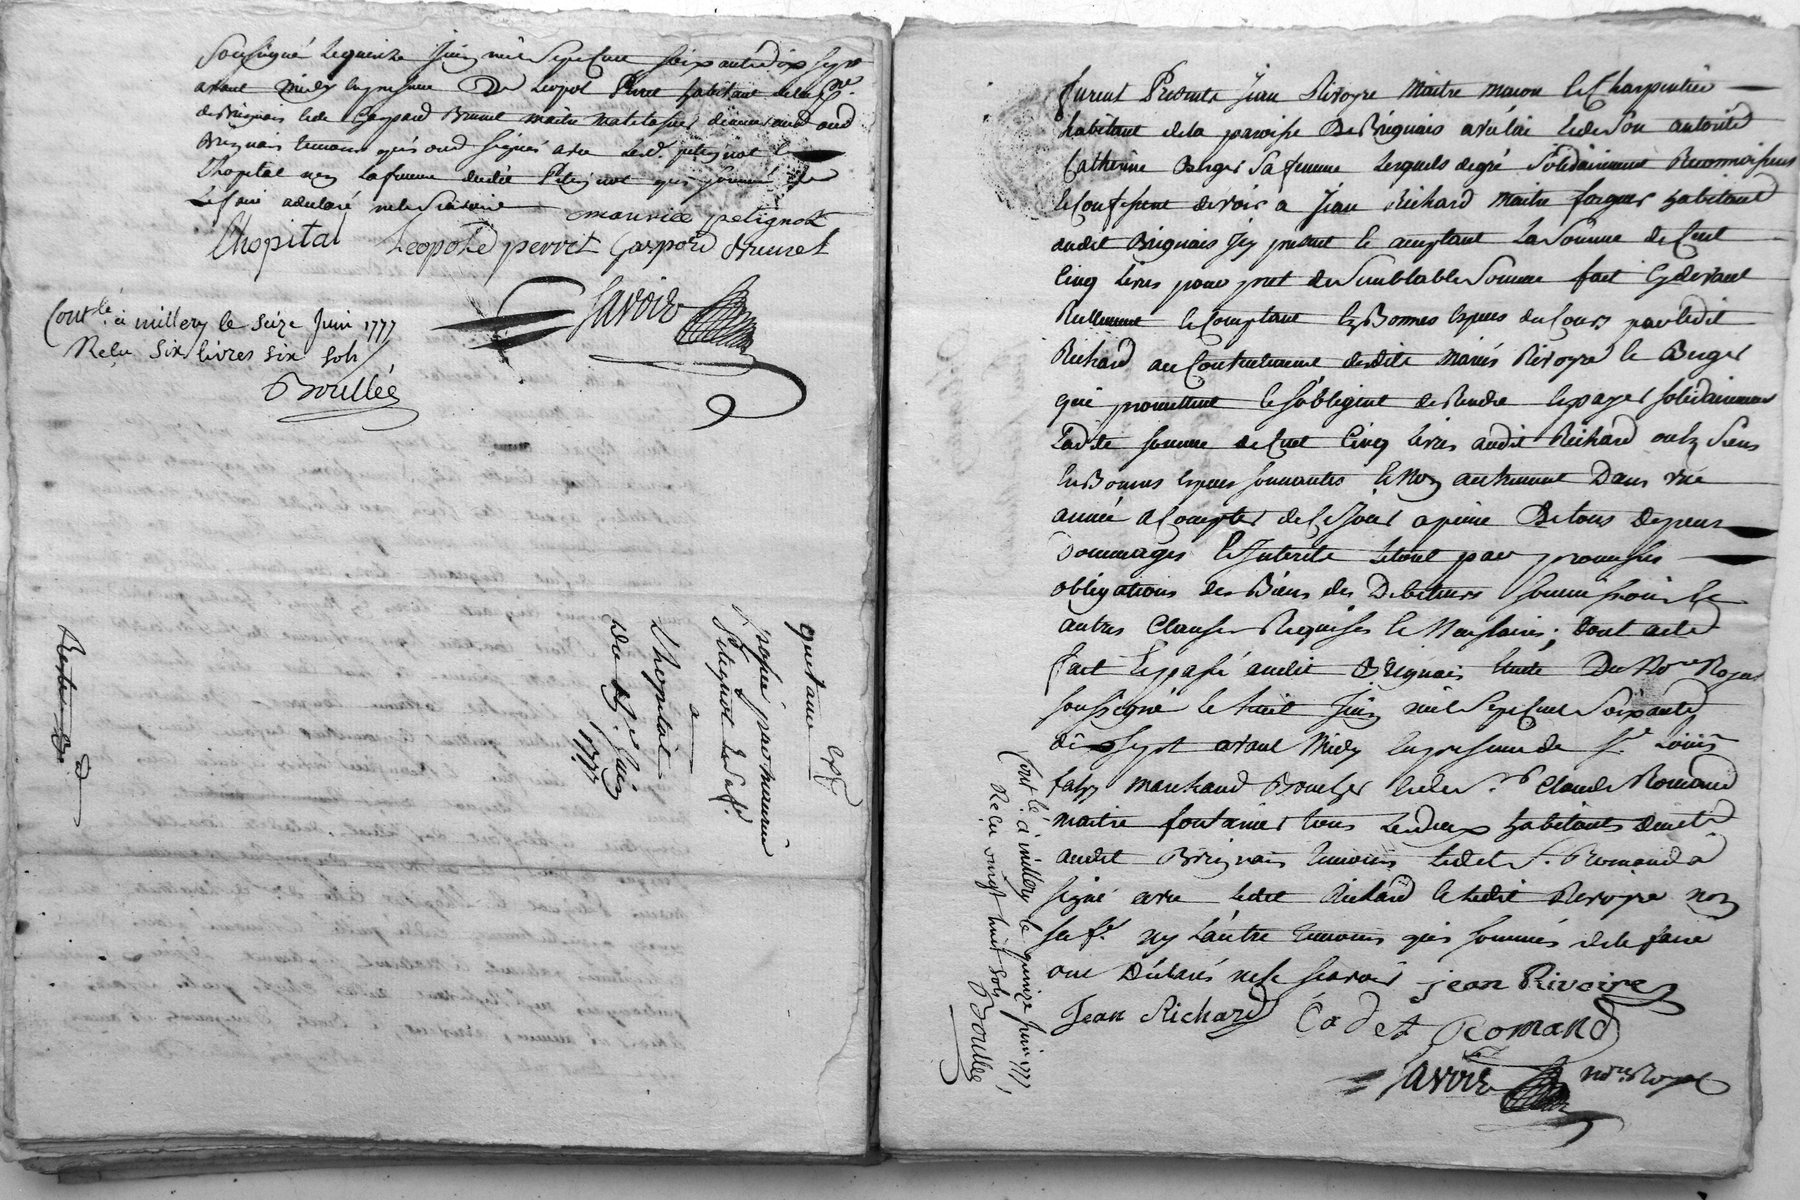 soussigné le quinze Juin mil sept cent soixante dix sept
avant midy en presence De Leopol Perret habitant
de Brignais & de Gaspard Brunet maitre matelassier demeurant aud
Brignais temoins qui ont signés avec led. petignot &
Lhopital non la femme dudit Petignot qui sommé de
le faire a declaré ne le scavoir
maurice petignot
Lhopital Leopold perret Gaspard Brunet
Savoie
Contlé a millery le seize Juin 1777
Reçu six livres six sols
Boullée
quittance
passée par maurice
Petignot & sa fe.
a
Lhopital
Du 15e. Juin
1777
furent Presents Jean Revoyre Maitre macon & Charpentier
habitant de la paroisse De Brignais & de son autorité
Catherine Berger sa femme lesquels de gré solidairement Reconnoissent
& Confessent devoir a Jean Richard maitre habitant
audit Brignais Icy present & acceptant La somme de Cent
Cinq livres pour pret de semblable somme fait cy devant
Reellement & Comptant En Bonnes Especes du Cours par ledit
Richard au Contentement desdits mariés Revoyre & Berger
qui promettent & s'obligent de Rendre & payer solidairement
Ladite somme de Cent Cinq livres audit Richard ou Es siens
En Bonnes Especes sonnantes & Non autrement Dans une
année a Compter de Ce Jour a peine De tous depens
Dommages & Interets le tout par promesses
obligations des Biens des Debiteurs soumissions &
autres Clauses Requises & Necessaires; dont acte
fait & passé audit Brignais Etude Du Nore Royal
soussigné le huit Juin mil sept Cent soixante
dix sept avant midy en presence de Sr. Louis
marchand Boucher & de Sr. Claude Romand
maitre fontainier tous les deux habitants
audit Brignais temoins ledit Sr. Romand a
signé avec ledit Richard & ledit Revoyre non
sa fe. ny L'autre temoins qui sommés de le faire
ont Déclarés ne le scavoir jean Rivoire
Jean Richard Cadet Romand
Savoie nore Royal
Contlé a millery le quinze Juin 1777,
Reçu vingt huit sols
Boullée